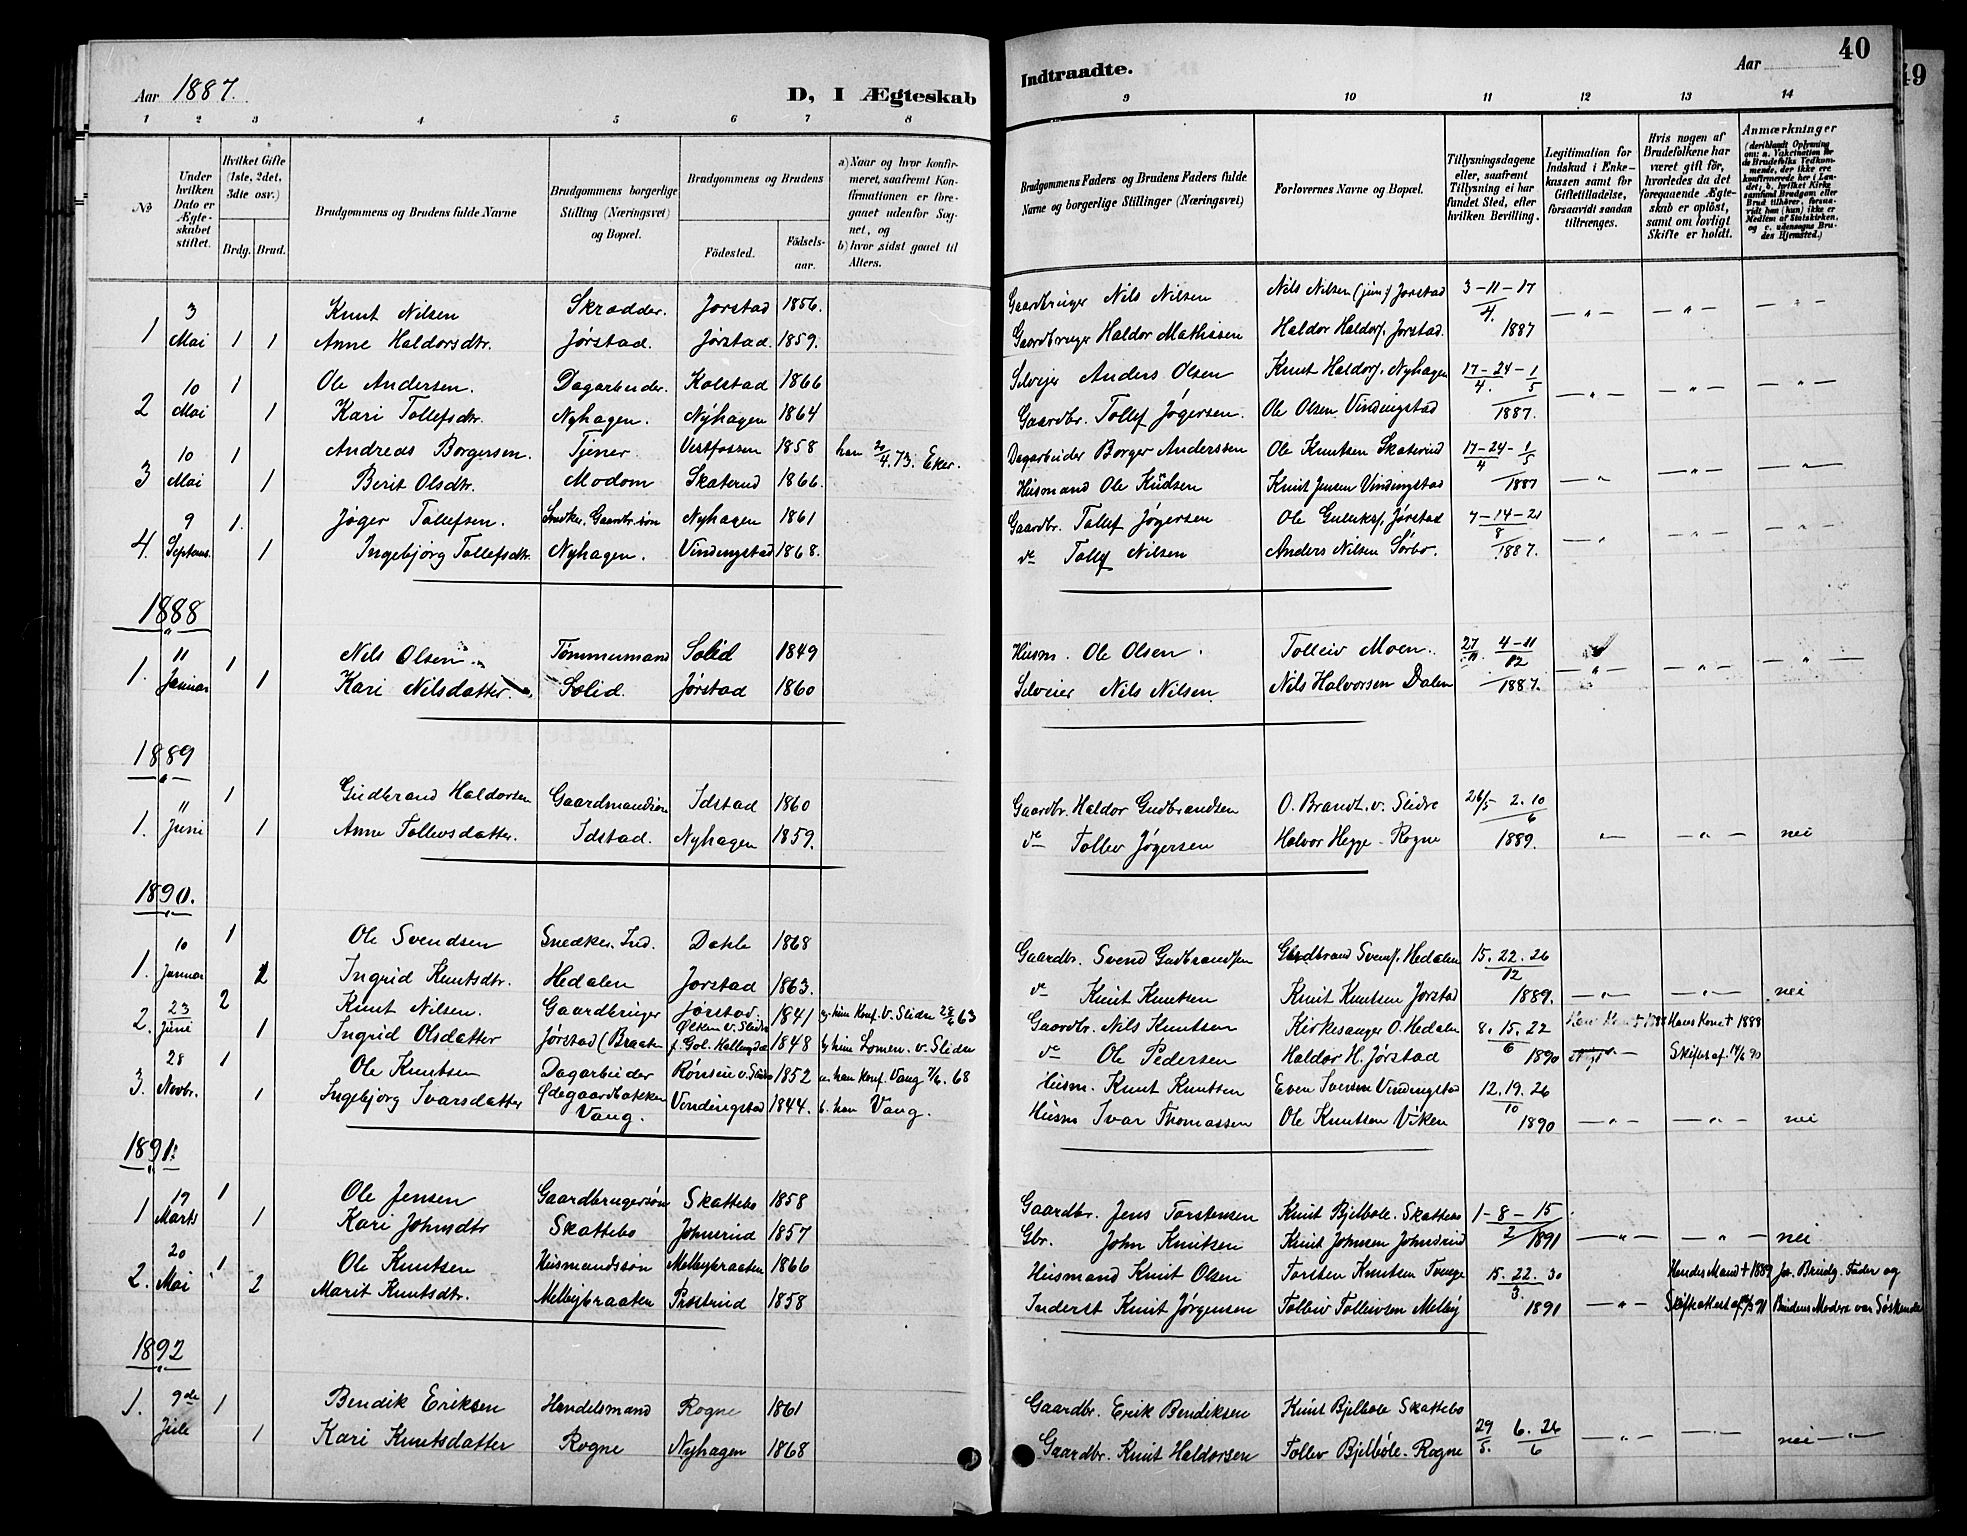 Aar 1887.
D, I Ægteskab
1 2 3 4 5 6 7 8
No
Under hvilken Dato er Ægteskabet stiftet.
Hvilket Gifte (1ste, 2det, 3dte osv.)
Brdg. Brud.
Brudgommens og Brudens fulde Navne
Brudgommens borgerlige Stilling (Næringsvei) og Bopæl.
Brudgommens og Brudens
Födested.
Födselsaar.
a) Naar og hvor konfirmeret, saafremt Konfirmationen er foregaaet udenfor Sognet, og
b) hvor sidst gaaet til Alters.
3 Knut Nilsen Skrædder. Jørstad 1856.
1 Mai 1 1 Anne Haldorsdtr. Jørstad. Jørstad. 1859.
10 1 Ole Andersen. Dagarbeider. Kolstad 1866
2 Mai 1 Kari Tollefsdtr. Nyhagen. Nyhagen 1864
10 1 Andreas Borgersen. Tjener Vestfossen 1858 han 20/4.73. Eker.
3 Mai 1 Berit Olsdtr. Modom Skaterud 1866.
9 1. Jøger Tollefsen. Snedker. Gaardbr.søn Nyhagen 1861
4. Septemb. 1 Ingebjørg Tollefsdtr. Nyhagen. Vindingstad 1868.
1888
11 1 Nils Olsen. Tømmermand Solid 1849
1. Januar 1 Kari Nilsdatter. Solid. Jørstad 1860
1889
" 1 Gudbrand Haldorsen Gaardmandsøn Idstad 1860
1. Juni 1 Anne Tollevsdatter. Idstad. Nyhagen 1859.
1890.
10 1 Ole Svendsen Snedker. Ind. Dahle 1868
1. Januar 1 Ingrid Knutsdtr. Hedalen Jørstad 1863.
23 2 Knut Nilsen. Gaardbruger Jørstad. 1841
2. Juni 1 Ingrid Olsdatter Jørstad (Braaten 1848 Lomen. v. Slidre
28 1 Ole Knutsen Dagarbeider 1852 han Konf. Vang 7/6. 68
3. Novbr. 1 Ingebjørg Ivarsdatter Ødegaardbakken Vang. Vendingstad 1844. b. han Vang.
1891.
19 1 Ole Jensen Gaardbrugersøn Skattebo 1858
1 Marts 1 Kari Johnsdtr Skattebo Johnerud 1857
20 1 Ole Knutsen Husmandssøn Melbybraaten 1866
2. Mai 2 Marit Knutsdtr. Melbybraaten Prostrud 1858
1892
1. 9de 1 Bendik Eriksen Handelsmand Rogne 1861
Jule 1 Kari Knutsdatter Rogne Nyhagen 1868
Indtraadte.
Aar
40
49
9 10 11 12 13 14
Brudgommens Faders og Brudens Faders fulde Navne og borgerlige Stillinger (Næringsvei)
Forlovernes Navne og Bopæl.
Tillysningsdagene eller, saafremt Tillysning ei har fundet Sted, efter hvilken Bevilling.
Legitimation for Indskud i Enkekassen samt for Giftetilladelse, forsaavidt saadan tiltrænges.
Hvis nogen af Brudefolkene har været gift för, hvorledes da det foregaaende Ægteskab er oplöst, samt om lovligt Skifte er holdt.
Anmærkninger (deriblandt Oplysning om: a. Vakcination for de Brudefolks Vedkommende, der ikke ere konfirmerede her i Landet; b. hvilket Kirkesamfund Brudgom eller Brud tilhörer, forsaavidt han (hun) ikke er Medlem af Statskirken, og c. udensogns Brudes Hjemsted.)
Gaardbruger Nils Nilsen Nils Nilsen (jun.) Jørstad 3-11-17/4.
Gaardbruger Haldor Mathisen Haldor Haldors. Jørstad. 1887 —"— —"— —"—
Selveier Anders Olsen Knut Haldors. Nyhagen 17-24/4. - 1/5
Gaardbr. Tollef Jøgersen. Ole Olsen Vindingstad 1887. —"— —"— —"—
Dagarbeider Borger Anderssen Ole Knutsen Skaterud 17-24/4 - 1/5
Husmand Ole Knudsen Knut Jensen Vindingstad 1887 —"— —"— —"—
Gaardbr. Tollef Jøgersen Ole Guluks. Jørstad 7-14-21/8
do Tollef Nilsen Anders Nilsen Sørbo. 1887. —"— —"— —"—
Husm. Ole Olsen. Tolleiv Moen. 27/11. 4-11/12
Selveier Nils Nilsen. Nils Halvorsen Dalen 1887. —"— —"— —"—
Gaardbr. Haldor Gudbrandsen O. Brandt. v. Slidre 26/5 2.10/6
do Tollev Jøgersen Halvor Hegge - Rogne 1889. "— —"— nei
Gaardbr. Svend Gudbrandsen Gudbrand Svens. Hedalen 15. 22. 26/12
do Knut Knutsen Knut Knutsen Jørstad 1889. —"— —"— nei
Gaardbr. Nils Knutsen Kirkesanger O. Hedalen 8. 15. 22/6 Hans Kone † 1888
do Ole Pedersen Haldor H. Jørstad 1890 Skifteat. af 14/6 90
Husm. Knut Knutsen Even Iversen Vindingstad 12. 19. 26/10
Husm Ivar Thomassen Ole Knutsen Viken 1890 —"— —"— nei
Gaardbr. Jens Torstensen Knut Bjelbøle. Skattebo 1-8-15/2
Gbr. John Knutsen Knut Johnsen Johnsrud 1891 —"— —"— nei
Husmand Knut Olsen Torsten Knutsen Tvenge 15. 22. 30/3. Hendes Mand † 1889 Ja. Brudg. Fader og
Inderst Knut Jørgensen Tolleiv Tolleivsen Melby 1891 —"— Brudens Moder var Søskende
Gaardbr. Erik Bendiksen Knut Bjelbøle Skattebo
Gaardbr. Knut Haldorsen Tollev Bjelbøle. Rogne 29/5. 6. 26/6 —"— —"— nei —"—